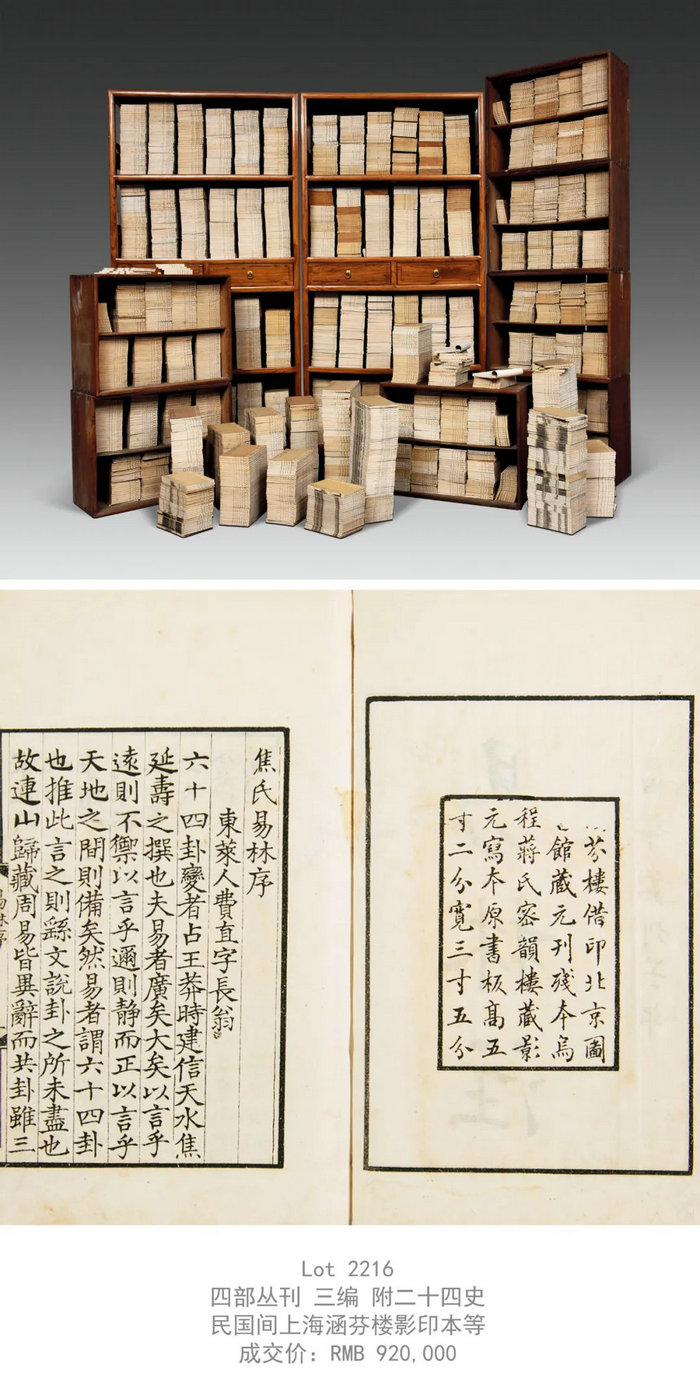 芬樓借印北京圖
館藏元刊殘本烏
程蔣氏密韻樓藏影
元寫本原書板高五
寸二分寬三寸五分
焦氏易林序
東萊人費直字長翁
六十四卦變者占王莽時建信天水焦
延壽之撰也夫易者廣矣大矣以言乎
遠則不禦以言乎邇則静而正以言乎
天地之間則備矣然易者謂六十四卦
也推此言之則繇文說卦之所未盡也
故連山歸藏周易皆異辭而共卦雖三
Lot 2216
四部丛刊 三编 附二十四史
民国间上海涵芬楼影印本等
成交价：RMB 920,000